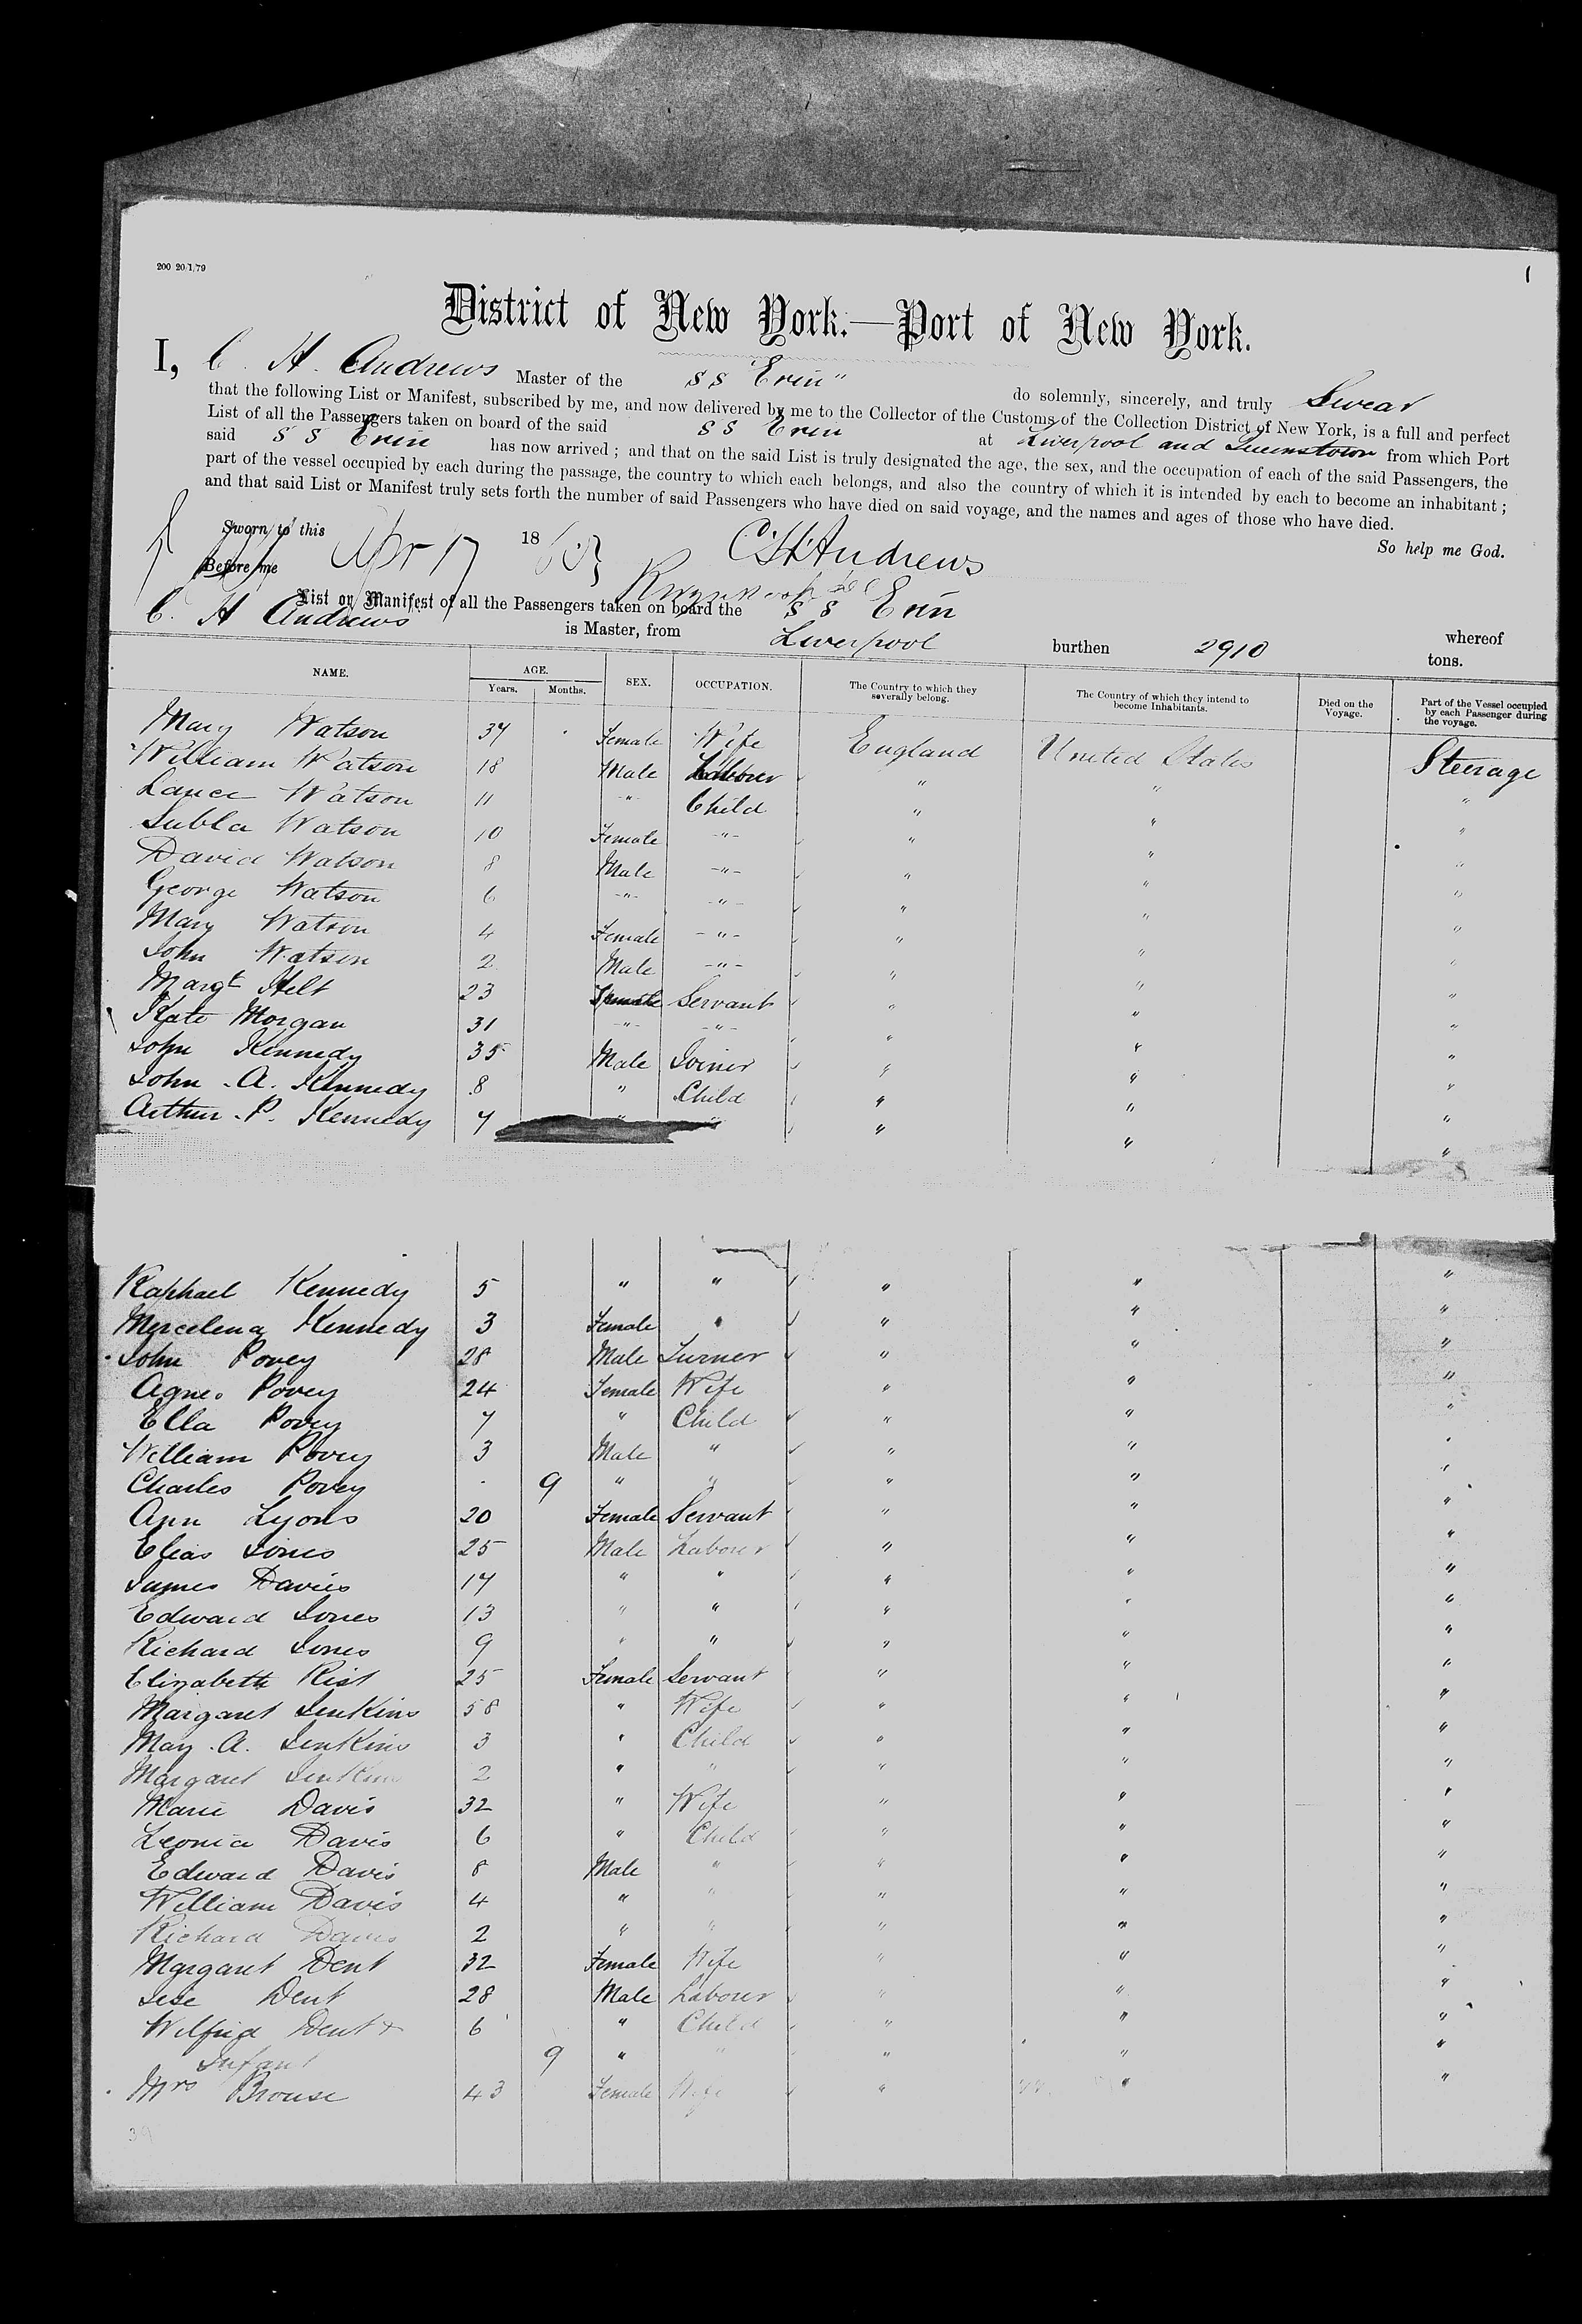 200 20/1/79
1
District of New York.—Port of New York.
I, C. H. Andrews Master of the SS "Erin" do solemnly, sincerely, and truly Swear
that the following List or Manifest, subscribed by me, and now delivered by me to the Collector of the Customs of the Collection District of New York, is a full and perfect
List of all the Passengers taken on board of the said SS Erin at Liverpool and Queenstown from which Port
said SS Erin has now arrived; and that on the said List is truly designated the age, the sex, and the occupation of each of the said Passengers, the
part of the vessel occupied by each during the passage, the country to which each belongs, and also the country of which it is intended by each to become an inhabitant;
and that said List or Manifest truly sets forth the number of said Passengers who have died on said voyage, and the names and ages of those who have died.
So help me God.
Sworn to this Apr 17 18
C H Andrews
Before me
List or Manifest of all the Passengers taken on board the SS Erin whereof
C. H Andrews is Master, from Liverpool burthen 2910 tons.
NAME. AGE. Years. Months. SEX. OCCUPATION. The Country to which they severally belong. The Country of which they intend to become Inhabitants. Died on the Voyage. Part of the Vessel occupied by each Passenger during the voyage.
Mary Watson 37 Female Wife England United States Steerage
William Watson 18 Male Labourer " " "
Lance Watson 11 " Child " " "
Watson 10 Female " " " "
David Watson 8 Male " " " "
George Watson 6 " " " " "
Mary Watson 4 Female " " " "
John Watson 2 Male " " " "
Margt Helt 23 Female Servant " " "
Kate Morgan 31 " " " " "
John Kennedy 35 Male Joiner " " "
John A. Kennedy 8 " Child " " "
Arthur P. Kennedy 7 " " " " "
Raphael Kennedy 5 " " " " "
Mercelena Kennedy 3 Female " " " "
John Povey 28 Male Turner " " "
Agnes Povey 24 Female Wife " " "
Ella Povey 7 " Child " " "
William Povey 3 Male " " " "
Charles Povey 9 " " " " "
Ann Lyons 20 Female Servant " " "
Elias Jones 25 Male Labourer " " "
James Davies 17 " " " " "
Edward Jones 13 " " " " "
Richard Jones 9 " " " " "
Elizabeth Rist 25 Female Servant " " "
Margaret Jenkins 58 " Wife " " "
May A. Jenkins 3 " Child " " "
Margaret Jenkins 2 " " " " "
Marie Davis 32 " Wife " " "
Leonia Davis 6 " Child " " "
Edward Davis 8 Male " " " "
William Davis 4 " " " " "
Richard Davis 2 " " " " "
Margaret Dent 32 Female Wife " " "
Jese Dent 28 Male Labourer " " "
Wilfrid Dent & 6 " Child " " "
Infant 9 " " " " "
Mrs Brouse 43 Female Wife " " "
39